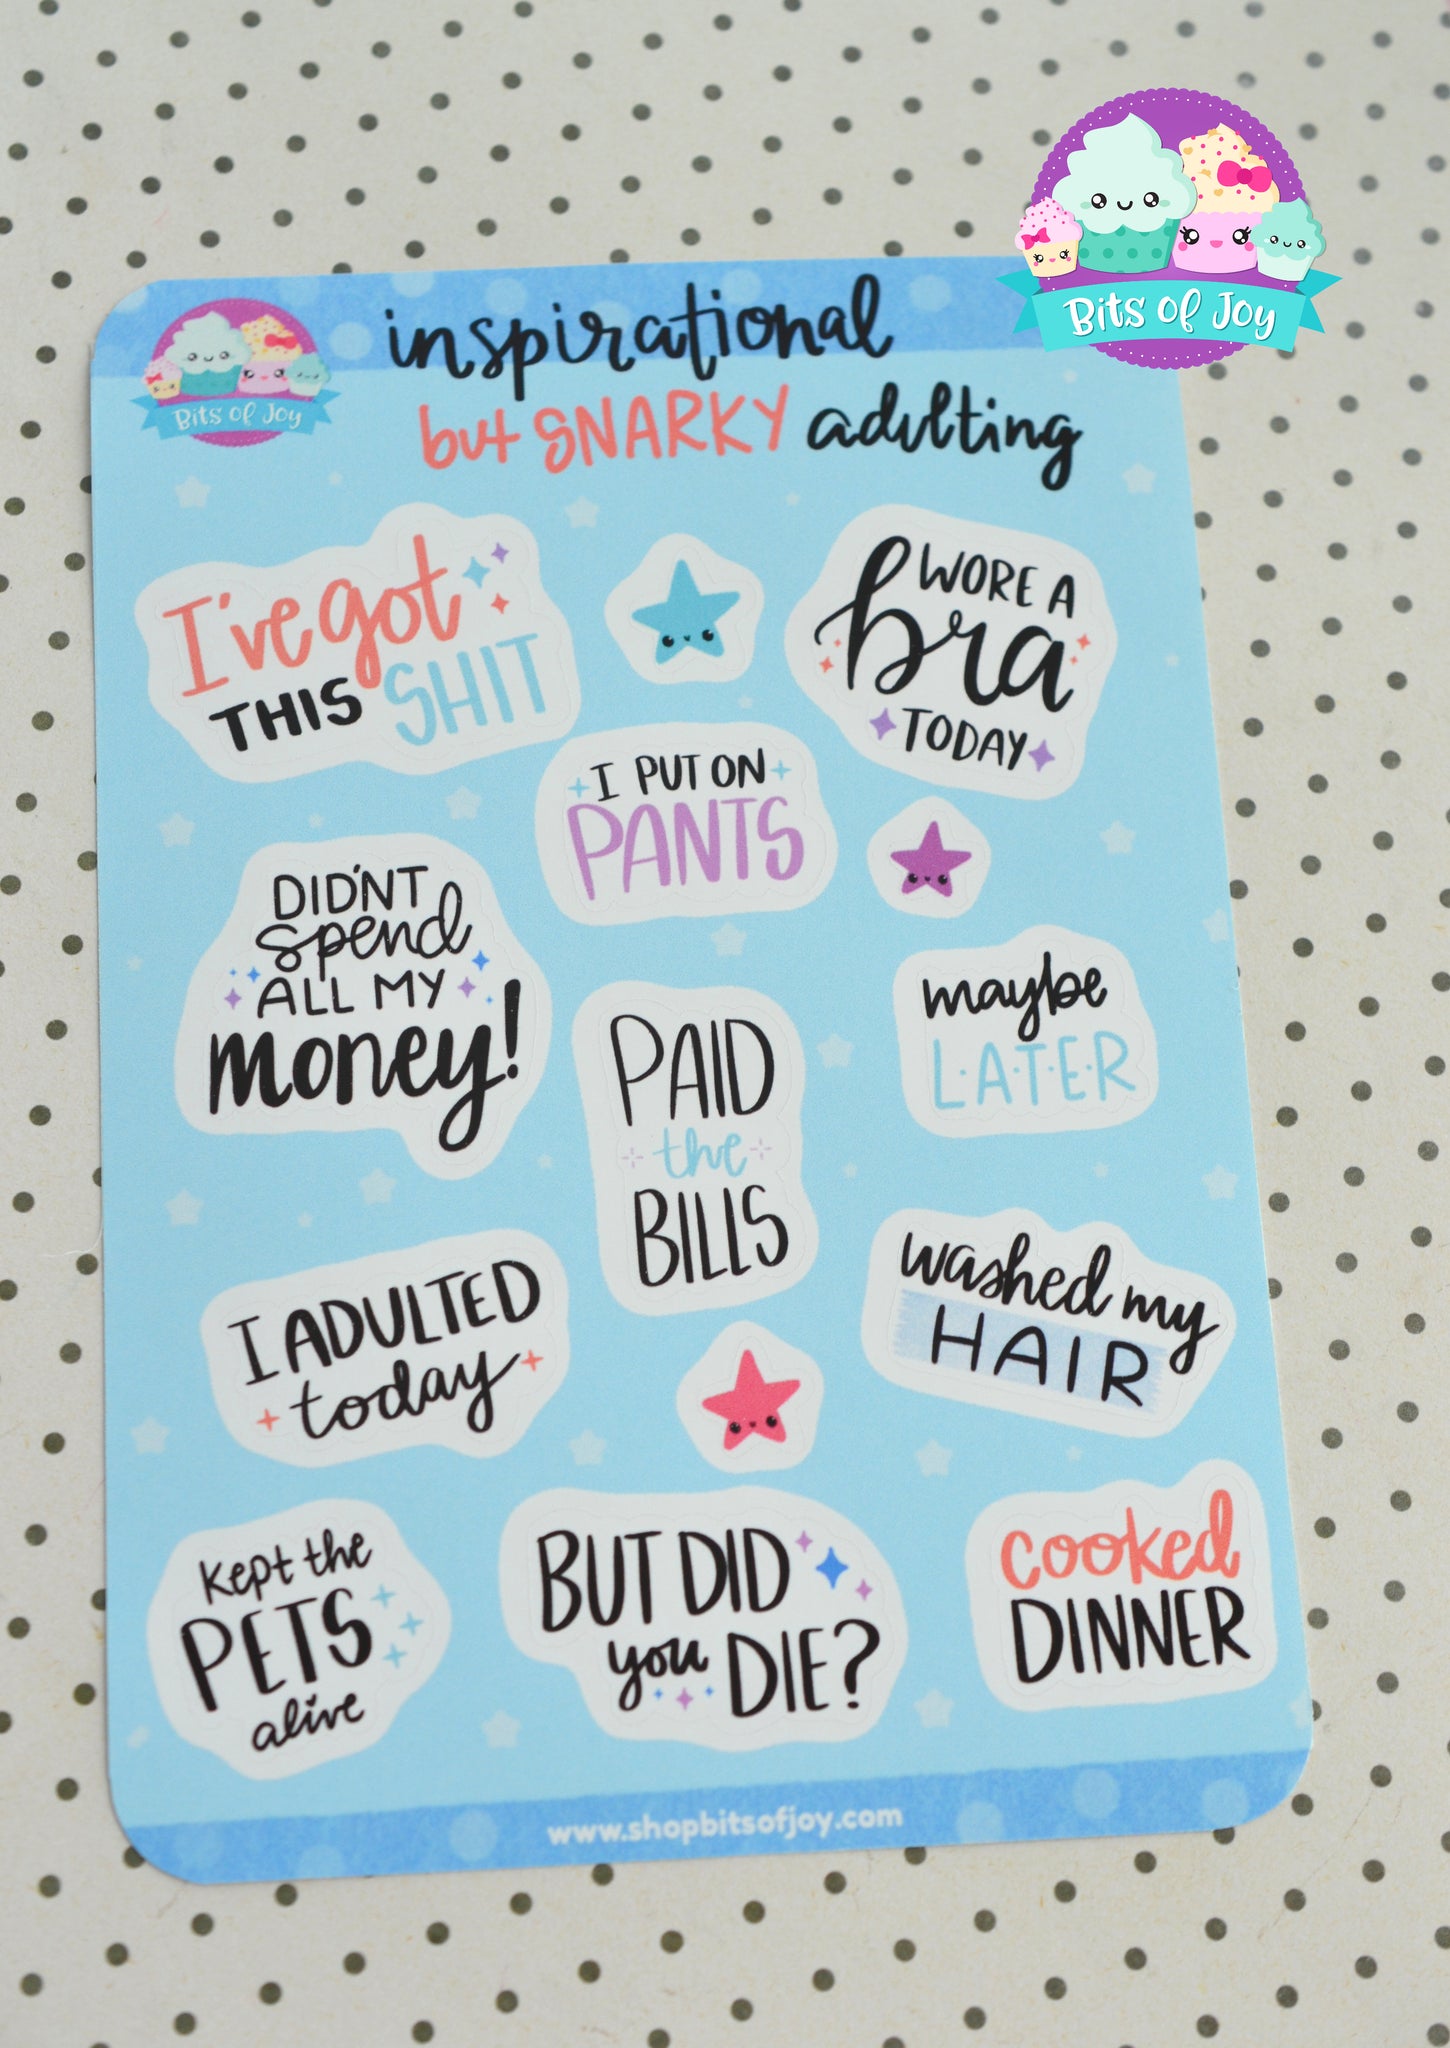 Bits of Joy
Bits of Joy
inspirational
but SNARKY adulting
I've got
THIS SHIT
WORE A
bra
TODAY
I PUT ON
PANTS
DID'NT
spend
ALL MY
money!
maybe
L·A·T·E·R
PAID
the
BILLS
I ADULTED
today
washed my
HAIR
kept the
PETS
alive
BUT DID
you DIE?
cooked
DINNER
www.shopbitsofjoy.com